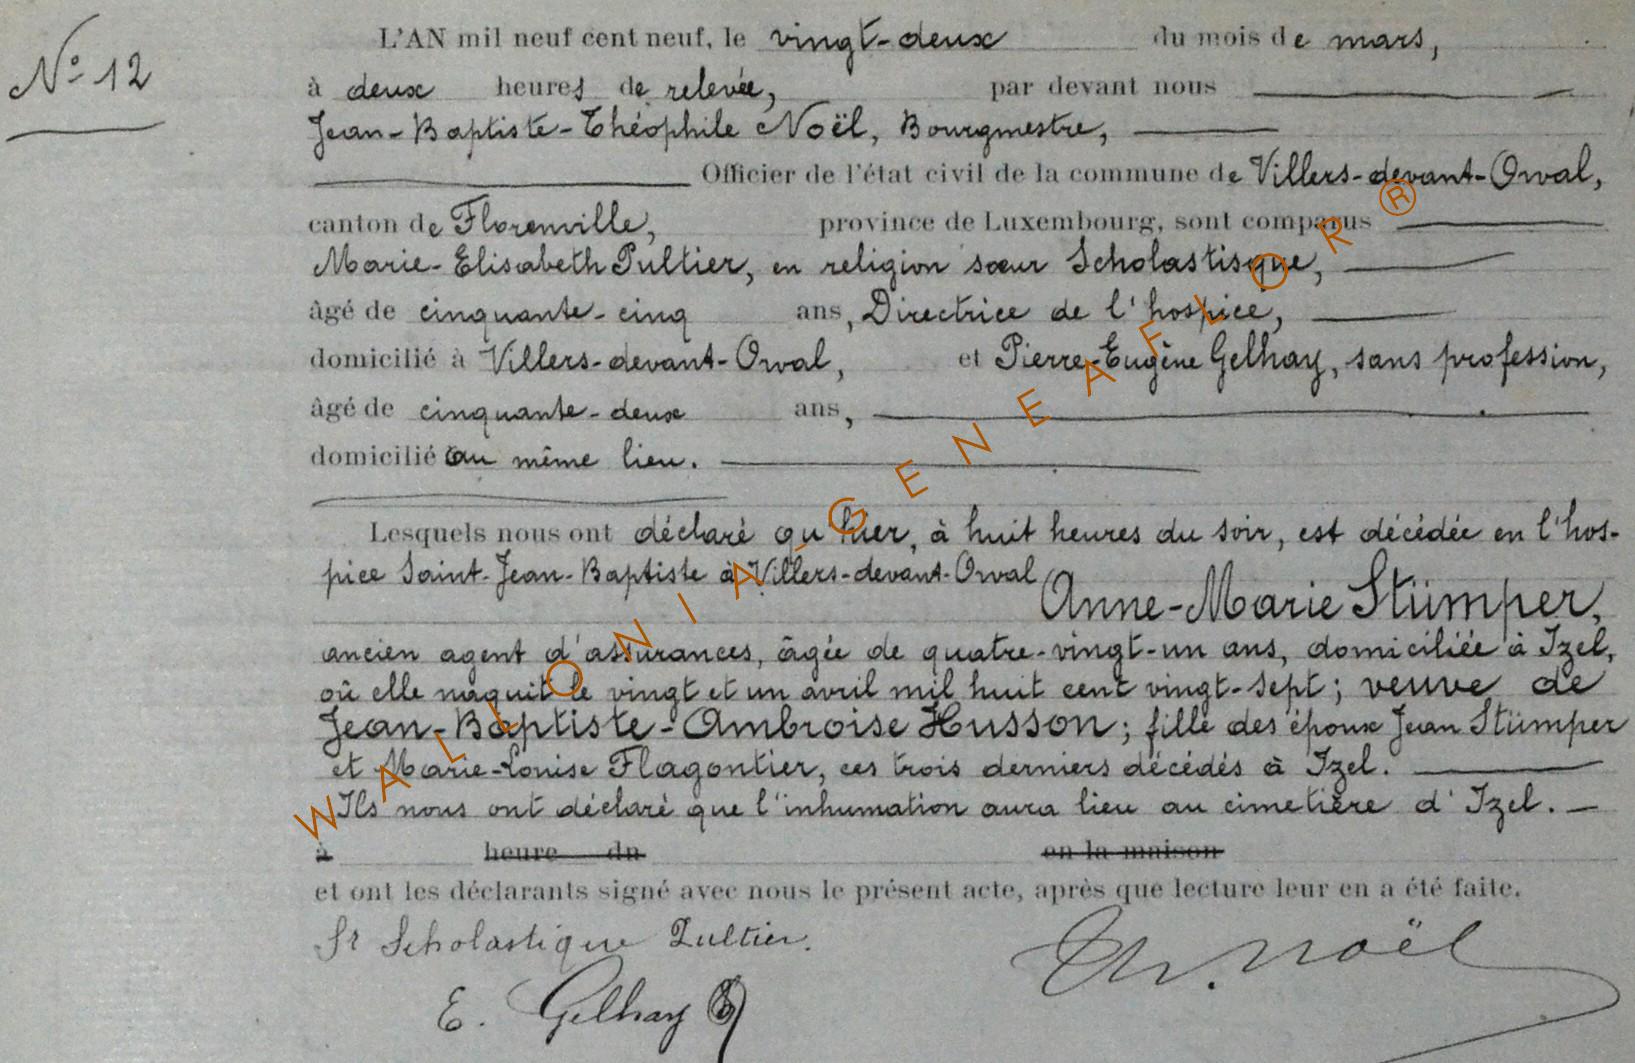 L'AN mil neuf cent neuf, le vingt-deux du mois de mars,
No 12
à deux heures de relevée, par devant nous
Jean-Baptiste-Théophile Noël, Bourgmestre,
Officier de l'état civil de la commune de Villers-devant-Orval,
canton de Florenville, province de Luxembourg, sont comparus
Marie-Elisabeth Pultier, en religion sœur Scholastique,
âgé de cinquante-cinq ans, Directrice de l'hospice,
domicilié à Villers-devant-Orval, et Pierre-Eugène Gelhay, sans profession,
âgé de cinquante-deux ans,
domicilié au même lieu.
Lesquels nous ont déclaré qu'hier, à huit heures du soir, est décédée en l'hos-
pice Saint-Jean-Baptiste à Villers-devant-Orval Anne-Marie Stümper,
ancien agent d'assurances, âgée de quatre-vingt-un ans, domiciliée à Izel,
où elle naquit le vingt et un avril mil huit cent vingt-sept; veuve de
Jean-Baptiste-Ambroise Husson; fille des époux Jean Stümper
et Marie-Louise Flagontier, ces trois derniers décédés à Izel.
Ils nous ont déclaré que l'inhumation aura lieu au cimetière d'Izel.
à heure du en la maison
et ont les déclarants signé avec nous le présent acte, après que lecture leur en a été faite.
Sr Scholastique Pultier.
Th. Noël
E. Gelhay
WALLONIA-GENEAFLOR ®